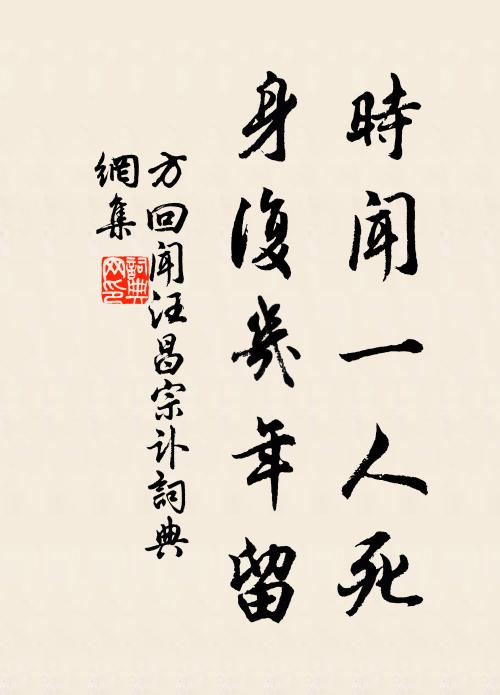 時聞一人死
身復幾年留
方回聞汪昌宗訃詞典
網集
詞典
网印